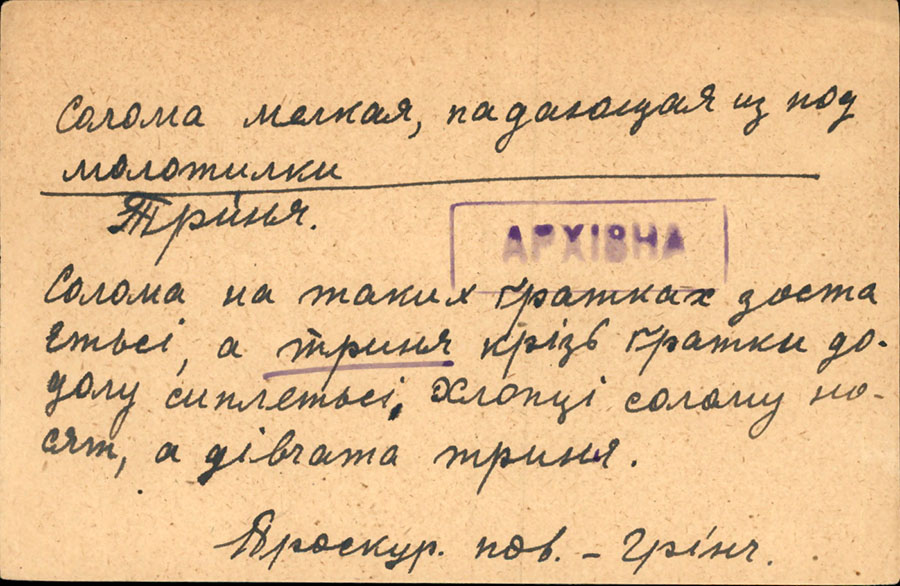 Солома мелкая, падающая из под
молотилки
Триня.
АРХІВНА
Солома на таких ґратках зоста
єтьсі, а триня крізь ґратки до-
долу сиплетьсі. Хлопці солому но-
сят, а дівчата триня.
Проскур. пов. – Грінч.